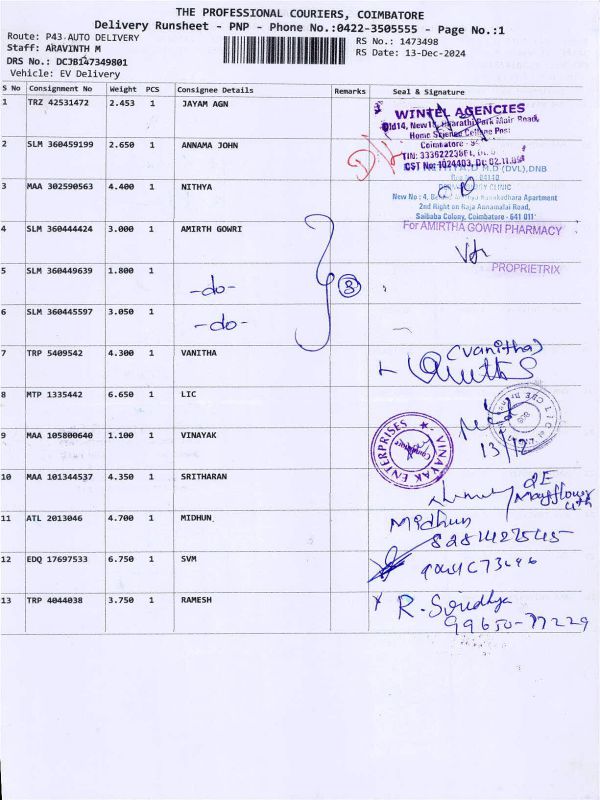 THE PROFESSIONAL COURIERS, COIMBATORE
Delivery Runsheet - PNP - Phone No.:0422-3505555 - Page No.:1
Route: P43 AUTO DELIVERY
RS No.: 1473498
Staff: ARAVINTH M
RS Date: 13-Dec-2024
DRS No.: DCJB147349801
Vehicle: EV Delivery
S No Consignment No Weight PCS Consignee Details Remarks Seal & Signature
1 TRZ 42531472 2.453 1 JAYAM AGN
WINTEL AGENCIES
Old14, New Bharathi Park Main Road,
Home Science College Post
Coimbatore
2 SLM 360459199 2.650 1 ANNAMA JOHN
TIN: 333622238
CST No: 1024403, Dt: 02.11.
M D (DVL),DNB
3 MAA 302590563 4.400 1 NITHYA
CLINIC
New No : 4, Apartment
2nd Right on Raja Annamalai Road,
Saibaba Colony, Coimbatore - 641 011
4 SLM 360444424 3.000 1 AMIRTH GOWRI
For AMIRTHA GOWRI PHARMACY
PROPRIETRIX
5 SLM 360449639 1.800 1 -do-
3
6 SLM 360445597 3.050 1 -do-
7 TRP 5409542 4.300 1 VANITHA
(Vanitha)
8 MTP 1335442 6.650 1 LIC
13/12
9 MAA 105800640 1.100 1 VINAYAK
VINAYAK ENTERPRISES
10 MAA 101344537 4.350 1 SRITHARAN
Mayflower
11 ATL 2013046 4.700 1 MIDHUN
Midhun
12 EDQ 17697533 6.750 1 SVM
13 TRP 4044038 3.750 1 RAMESH
99650-77229